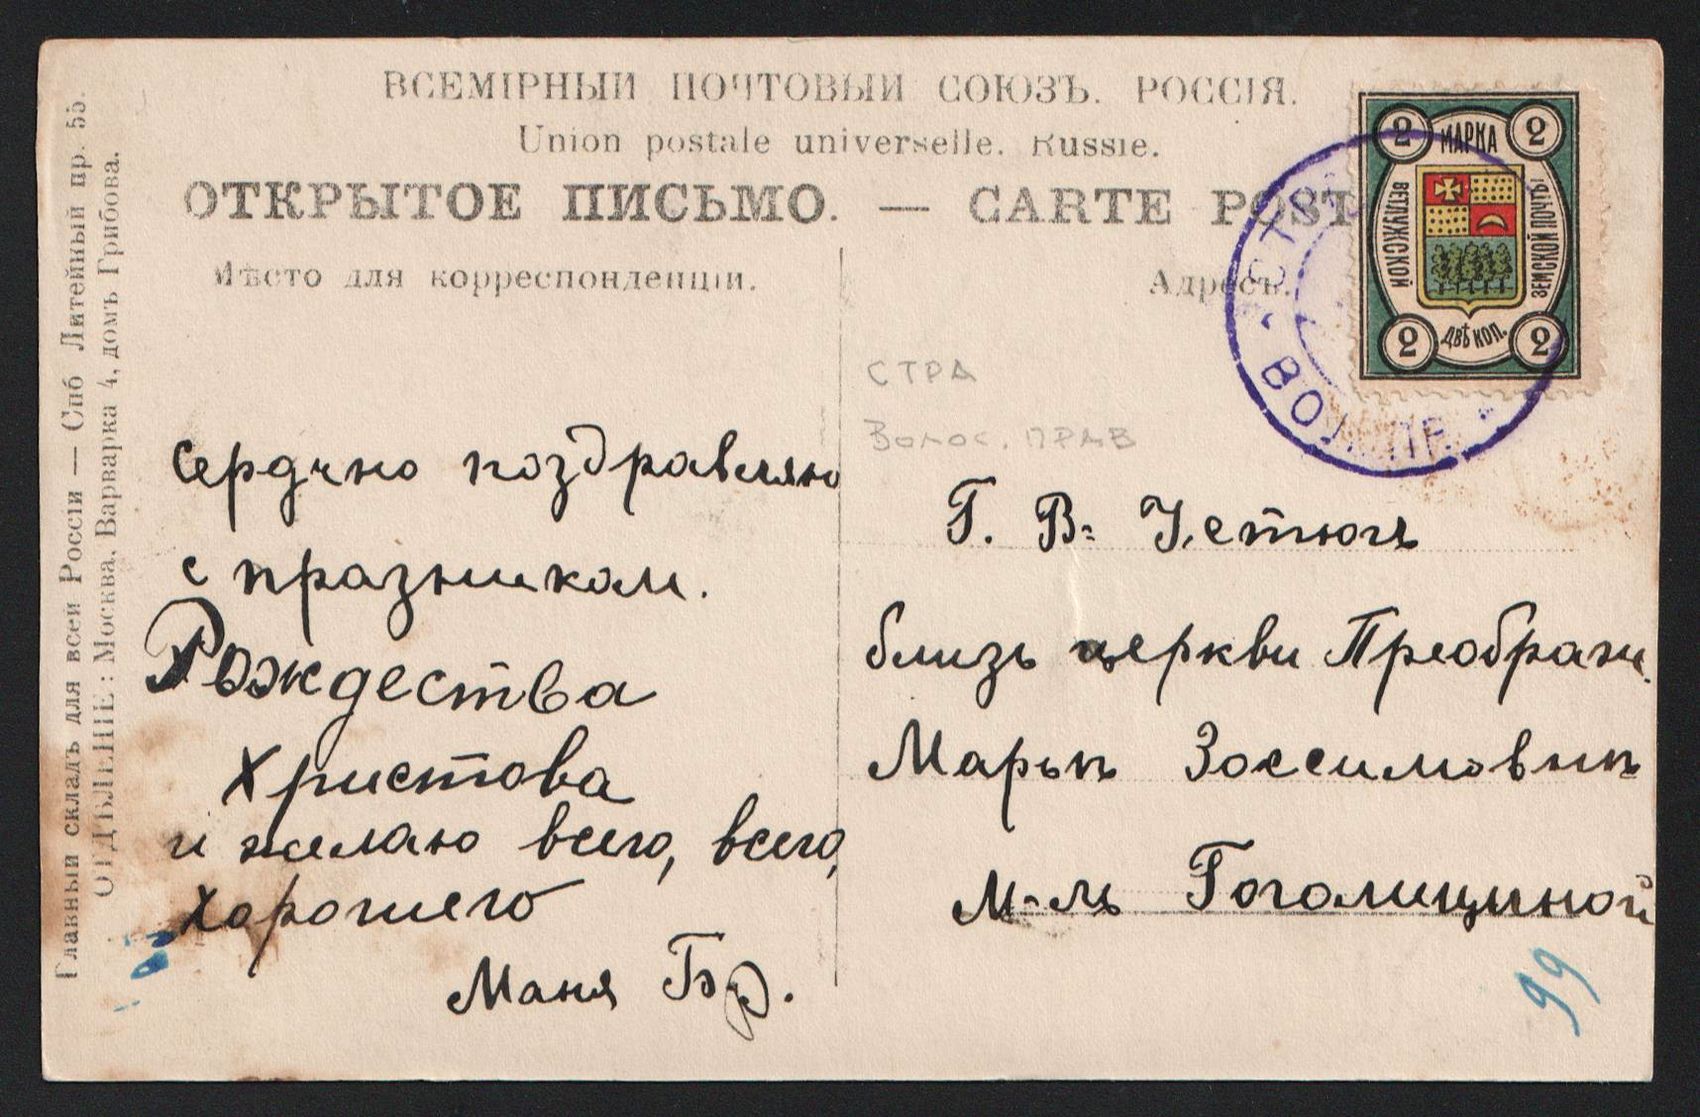 ВСЕМІРНЫЙ ПОЧТОВЫЙ СОЮЗЪ. РОССІЯ.
Union postale universelle. Russie.
ОТКРЫТОЕ ПИСЬМО. — CARTE POST
Мѣсто для корреспонденціи.
Адресъ.
Главный складъ для всей Россіи — Спб Литейный пр. 55.
ОТДѢЛЕНІЕ: Москва, Варварка 4, домъ Грибова.
2 МАРКА 2
ВЕТЛУЖСКОЙ
ЗЕМСКОЙ ПОЧТЫ
2 ДВѢ КОП. 2
СТРА
Волос. ПРАВ
Сердчно поздравляю
с празником.
Рождества
Христова
и желаю всего, всего,
хорошего
Маня Бр.
Г. В= Устюгъ
близь церкви Преображ.
Марьѣ Зоссимовнѣ
М-лъ Гоголициной
99